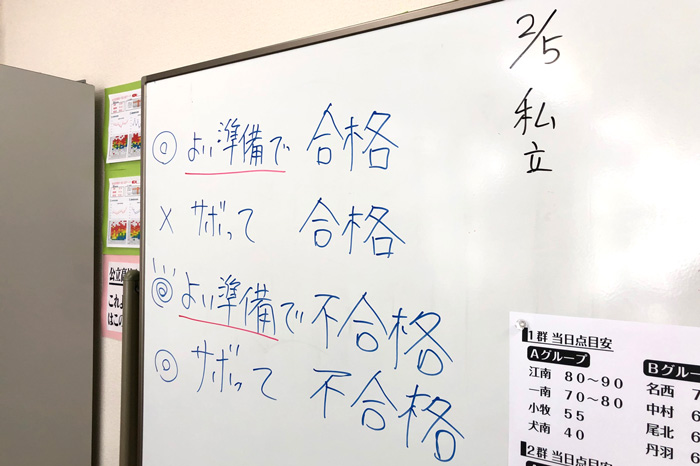 2/5
私立
◎ よい準備で 合格
× サボって 合格
◎ よい準備で 不合格
◎ サボって 不合格
1群 当日点目安
Aグループ
江南 80～90
一南 70～80
小牧 55
犬南 40
Bグルー
名西 7
中村 6
尾北 6
丹羽 6
2群 当日点目安
公立高
これよ
はこの